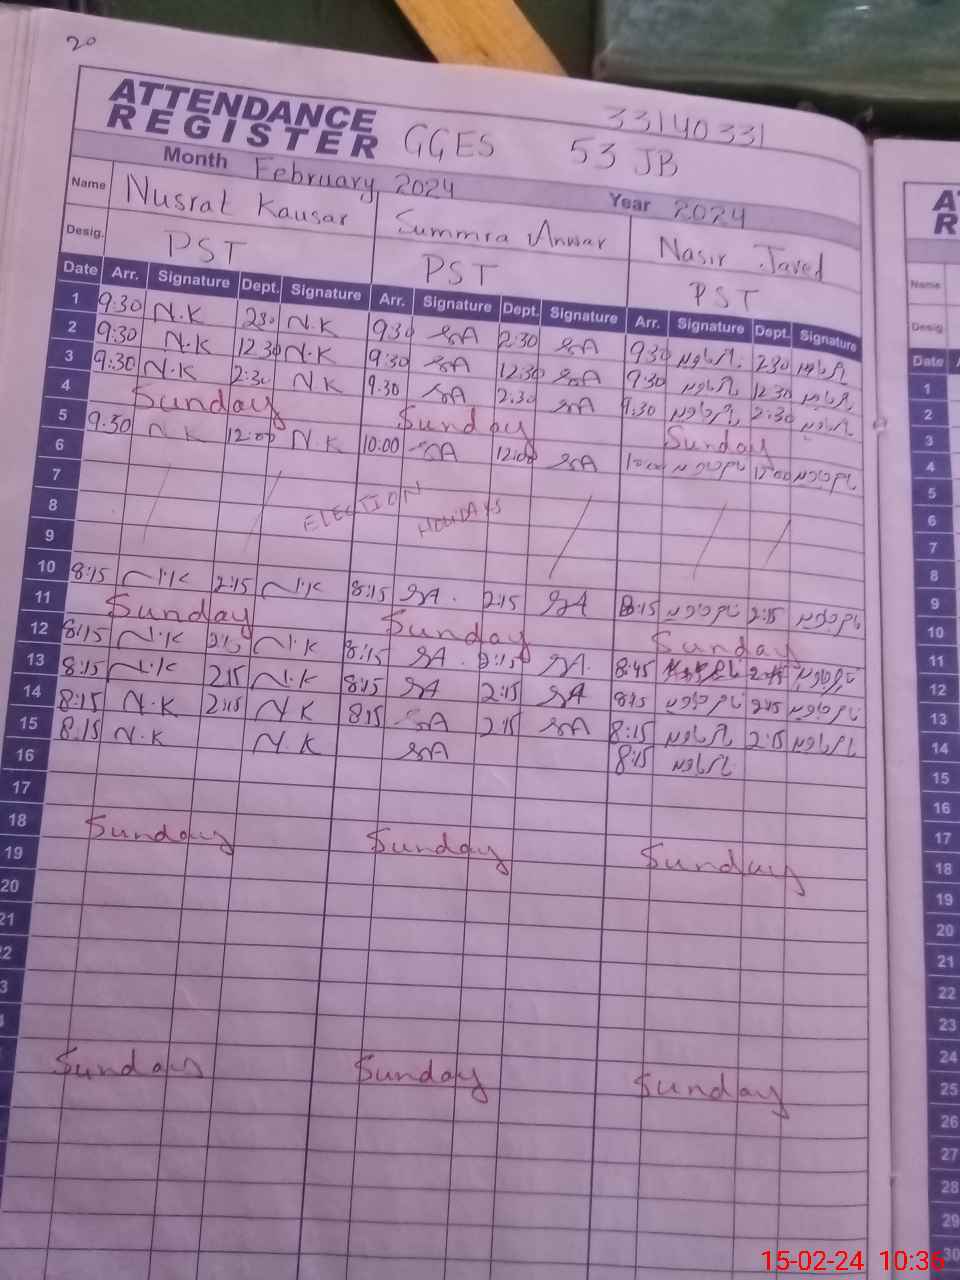 20
ATTENDANCE
REGISTER GGES 53 JB 33140331
Month February 2024 Year 2024
Name Nusrat Kausar Summra Anwar Nasir Javed
Desig. PST PST PST
Date Arr. Signature Dept. Signature Arr. Signature Dept. Signature Arr. Signature Dept. Signature
1 9:30 N.K 230 N.K 930 SA 2:30 SA 930 230
2 9:30 N.K 1230 N.K 9:30 SA 12.30 SA 930 1230
3 9:30 N.K 2:30 N.K 9.30 SA 2:30 SA 9:30 2:30
4 Sunday Sunday Sunday
5 9:30 N.K 12:00 N.K 10:00 SA 12:00 SA 10:00 12:00
6
7 ELECTION HOLIDAYS
8
9
10 8:15 N.K 2:15 N.K 8:15 SA. 2:15 SA 8:15 2:15
11 Sunday Sunday Sunday
12 8:15 N.K N.K 8:15 SA. 2:15 SA.
13 8:15 N.K 215 N.K 8:15 SA 2:15 SA 815 2:15
14 8:15 N.K 2:15 N.K 815 SA 2:15 SA 8:15 2:15
15 8:15 N.K N.K SA 8:15
16
17
18 Sunday Sunday Sunday
19
20
21
22
3
Sunday Sunday Sunday
A
R
Name
Desig
Date A
1
2
3
4
5
6
7
8
9
10
11
12
13
14
15
16
17
18
19
20
21
22
23
24
25
26
27
28
29
30
15-02-24 10:36